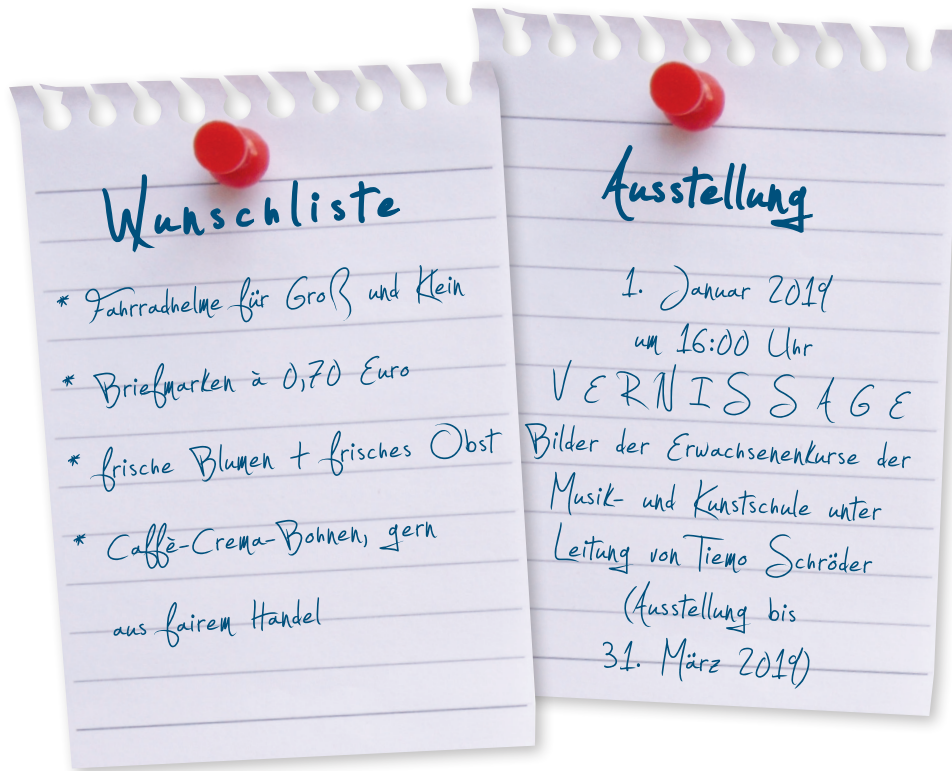 Wunschliste
* Fahrradhelme für Groß und Klein
* Briefmarken à 0,70 Euro
* frische Blumen + frisches Obst
* Caffè-Crema-Bohnen, gern
aus fairem Handel
Ausstellung
1. Januar 2019
um 16:00 Uhr
VERNISSAGE
Bilder der Erwachsenenkurse der
Musik- und Kunstschule unter
Leitung von Tiemo Schröder
(Ausstellung bis
31. März 2019)